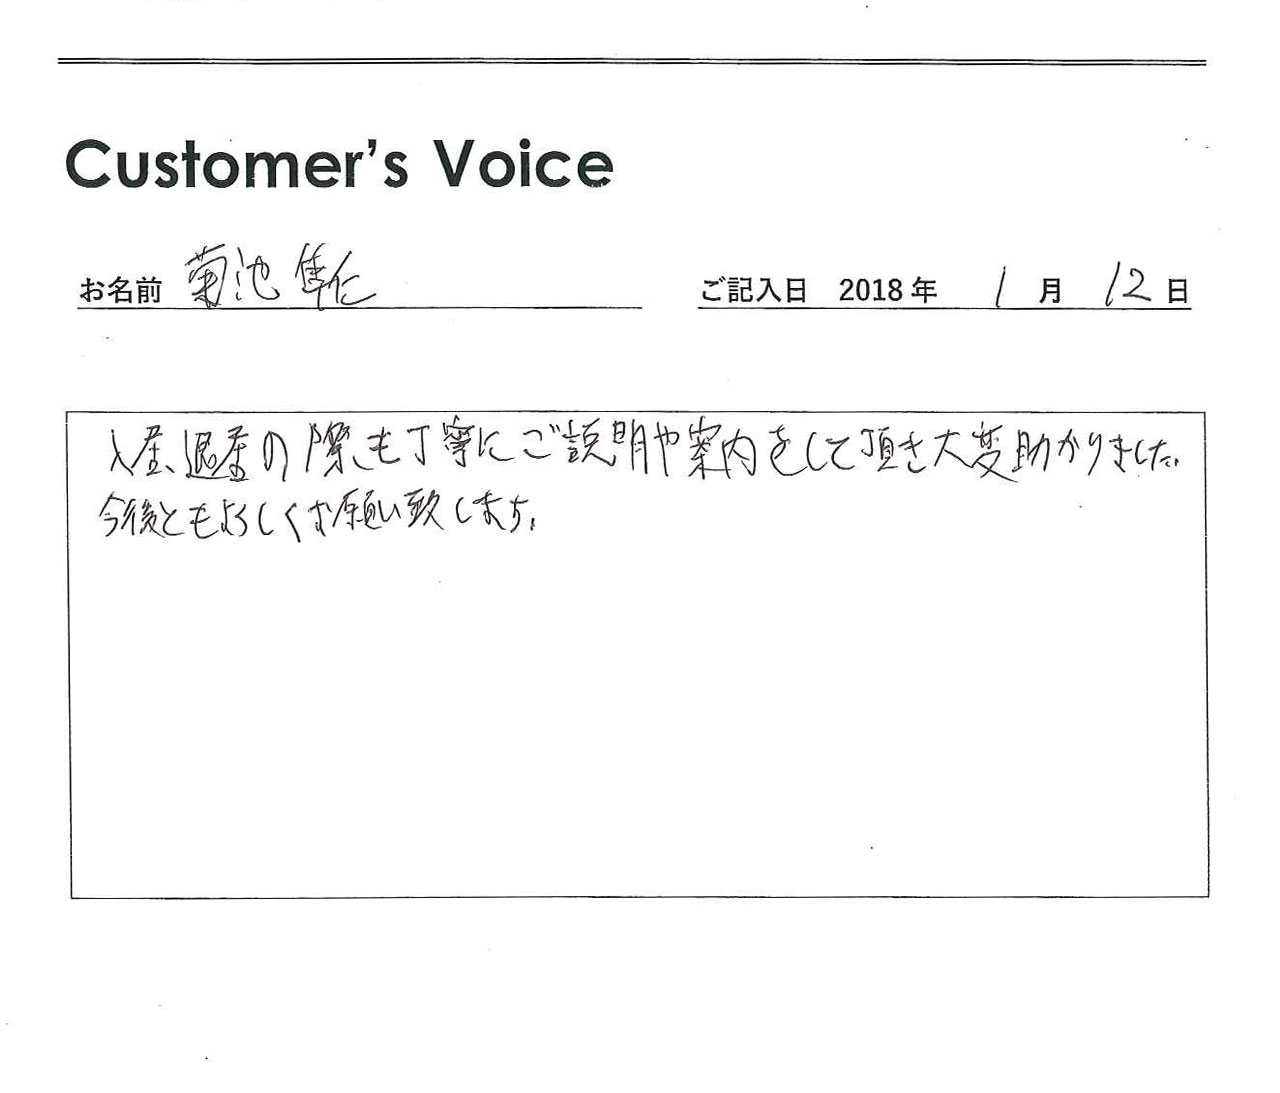 Customer's Voice
お名前 菊池 隼仁
ご記入日 2018年 1月 12日
入産、退産の際も丁寧にご説明や案内をして頂き大変助かりました。
今後ともよろしくお願い致します。